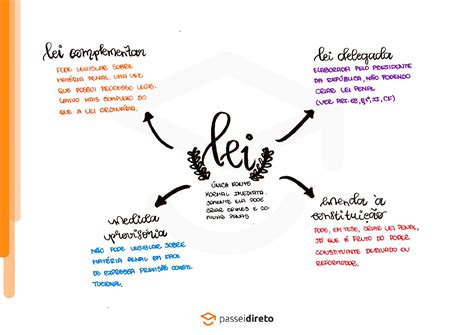 lei complementar
PODE LEGISLAR SOBRE
MATÉRIA PENAL, UMA VEZ
QUE POSSUI PROCESSO LEGIS-
LATIVO MAIS COMPLEXO DO
QUE A LEI ORDINÁRIA.
lei delegada
ELABORADA PELO PRESIDENTE
DA REPÚBLICA, NÃO PODENDO
CRIAR LEI PENAL
(VER ART. 68, §1º, II, CF)
lei
ÚNICA FONTE
FORMAL IMEDIATA.
SOMENTE ELA PODE
CRIAR CRIMES E CO-
MINAR PENAS
medida
provisória
NÃO PODE LEGISLAR SOBRE
MATÉRIA PENAL EM FACE
DE EXPRESSA PREVISÃO CONSTI-
TUCIONAL.
emenda à
constituição
PODE, EM TESE, CRIAR LEI PENAL,
JÁ QUE É FRUTO DO PODER
CONSTITUINTE DERIVADO OU
REFORMADOR.
passeidireto